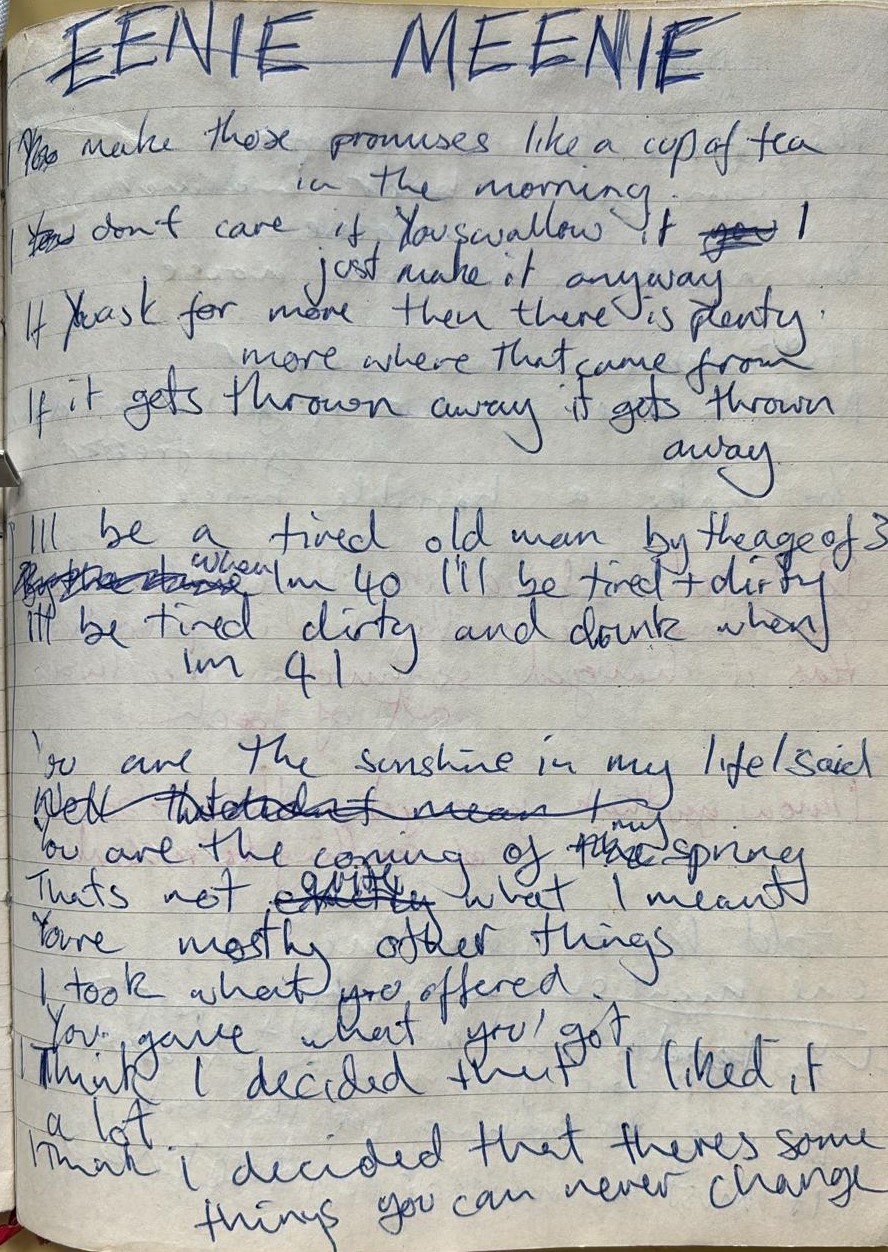 EENIE MEENIE
I make those promises like a cup of tea
in the morning.
I don't care if You swallow it I
just make it anyway
If You ask for more then there is plenty
more where that came from
If it gets thrown away it gets thrown
away
I'll be a tired old man by the age of 3
when Im 40 I'll be tired + dirty
I'll be tired dirty and drunk when
Im 41
You are the sunshine in my life I said
Well that didnt mean
You are the coming of my spring
Thats not quite what I meant
Youre mostly other things
I took what you offered.
You gave what you got
I Think I decided that I liked it
a lot
I Think i decided that theres some
things you can never change